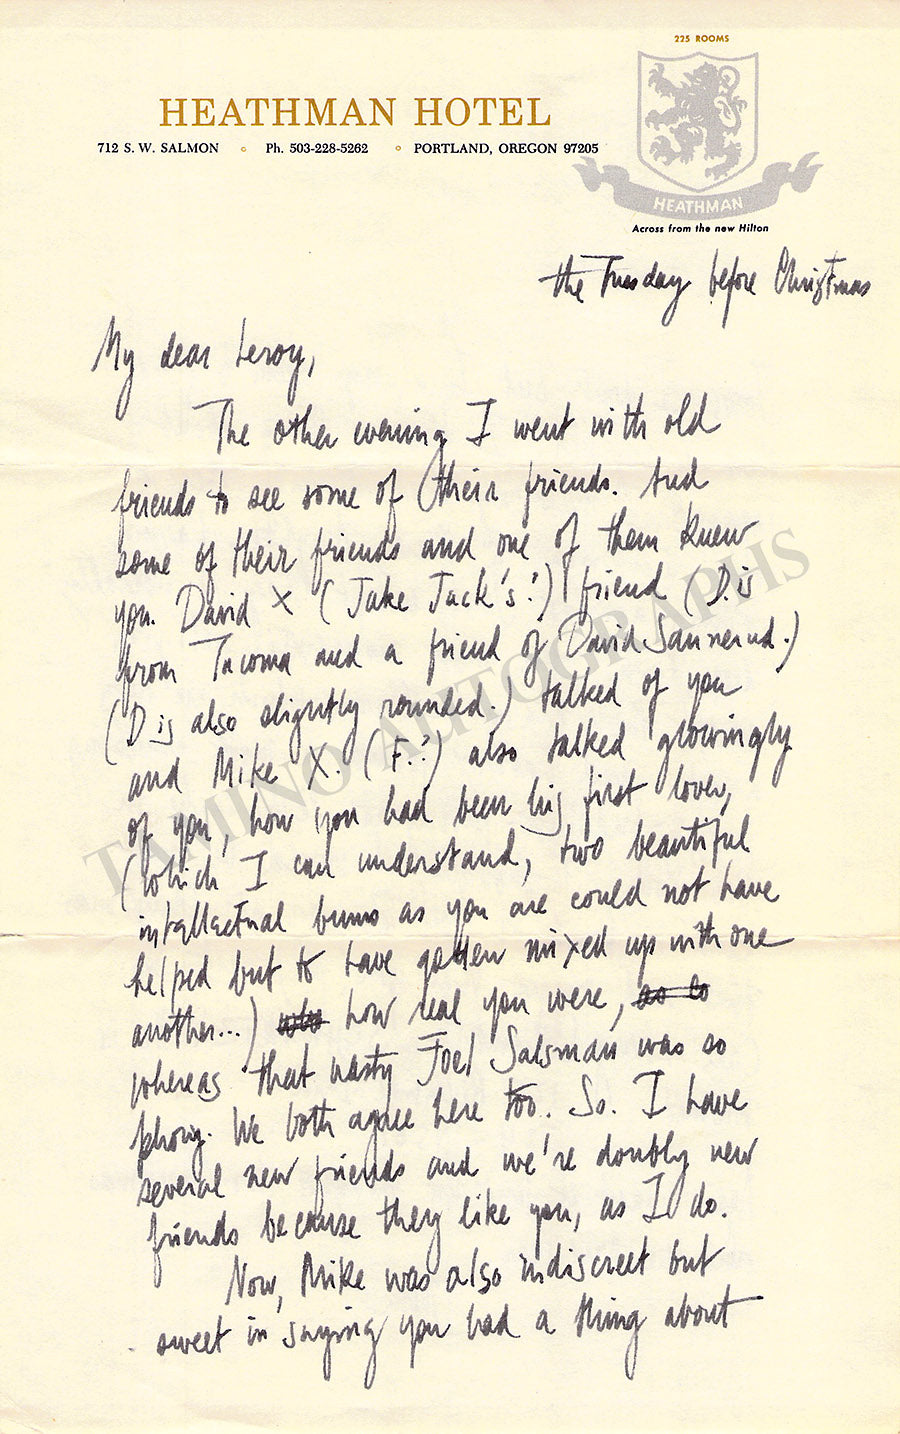 225 ROOMS
HEATHMAN HOTEL
712 S. W. SALMON • Ph. 503-228-5262 • PORTLAND, OREGON 97205
HEATHMAN
Across from the new Hilton
the Tuesday before Christmas
My dear Leroy,
The other evening I went with old
friends to see some of their friends. And
some of their friends and one of them knew
you. David X (Jake Jack's?) friend (D. is
from Tacoma and a friend of David Sannerud.)
(D is also slightly rounded.) talked of you
and Mike X. (F.?) also talked glowingly
of you, how you had been his first lover,
(which I can understand, two beautiful
intellectual bums as you are could not have
helped but to have gotten mixed up with one
another...) how real you were,
whereas that nasty Joel Salsman was so
phony. We both agree here too. So. I have
several new friends and we're doubly new
friends because they like you, as I do.
Now, Mike was also indiscreet but
sweet in saying you had a thing about
TAMINO AUTOGRAPHS